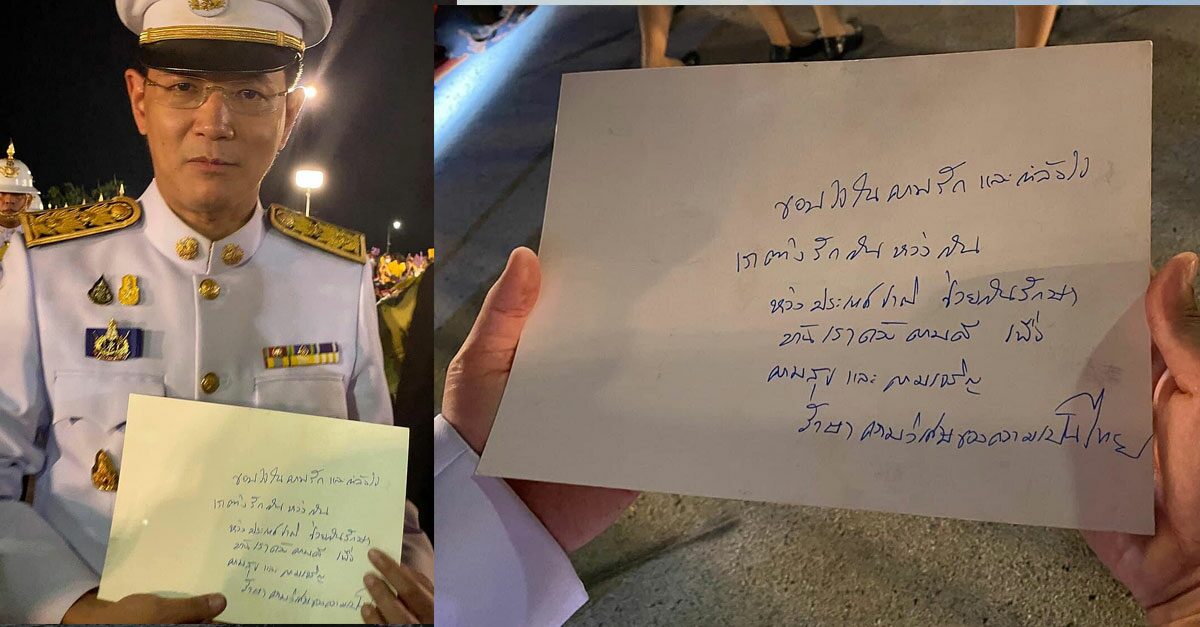 ขอบใจในความรัก และกำลังใจ
เราต่างรักกัน ห่วงกัน
ห่วงประเทศชาติ ช่วยกันรักษา
บ้านเราด้วยความดี เพื่อ
ความสุข และ ความเจริญ
รักษาความวิเศษของความเป็น
ขอบใจในความรัก และกำลังใจ
เราต่างรักกัน ห่วงกัน
ห่วงประเทศชาติ ช่วยกันรักษา
บ้านเราด้วยความดี เพื่อ
ความสุข และ ความเจริญ
รักษาความวิเศษของความเป็นไทย